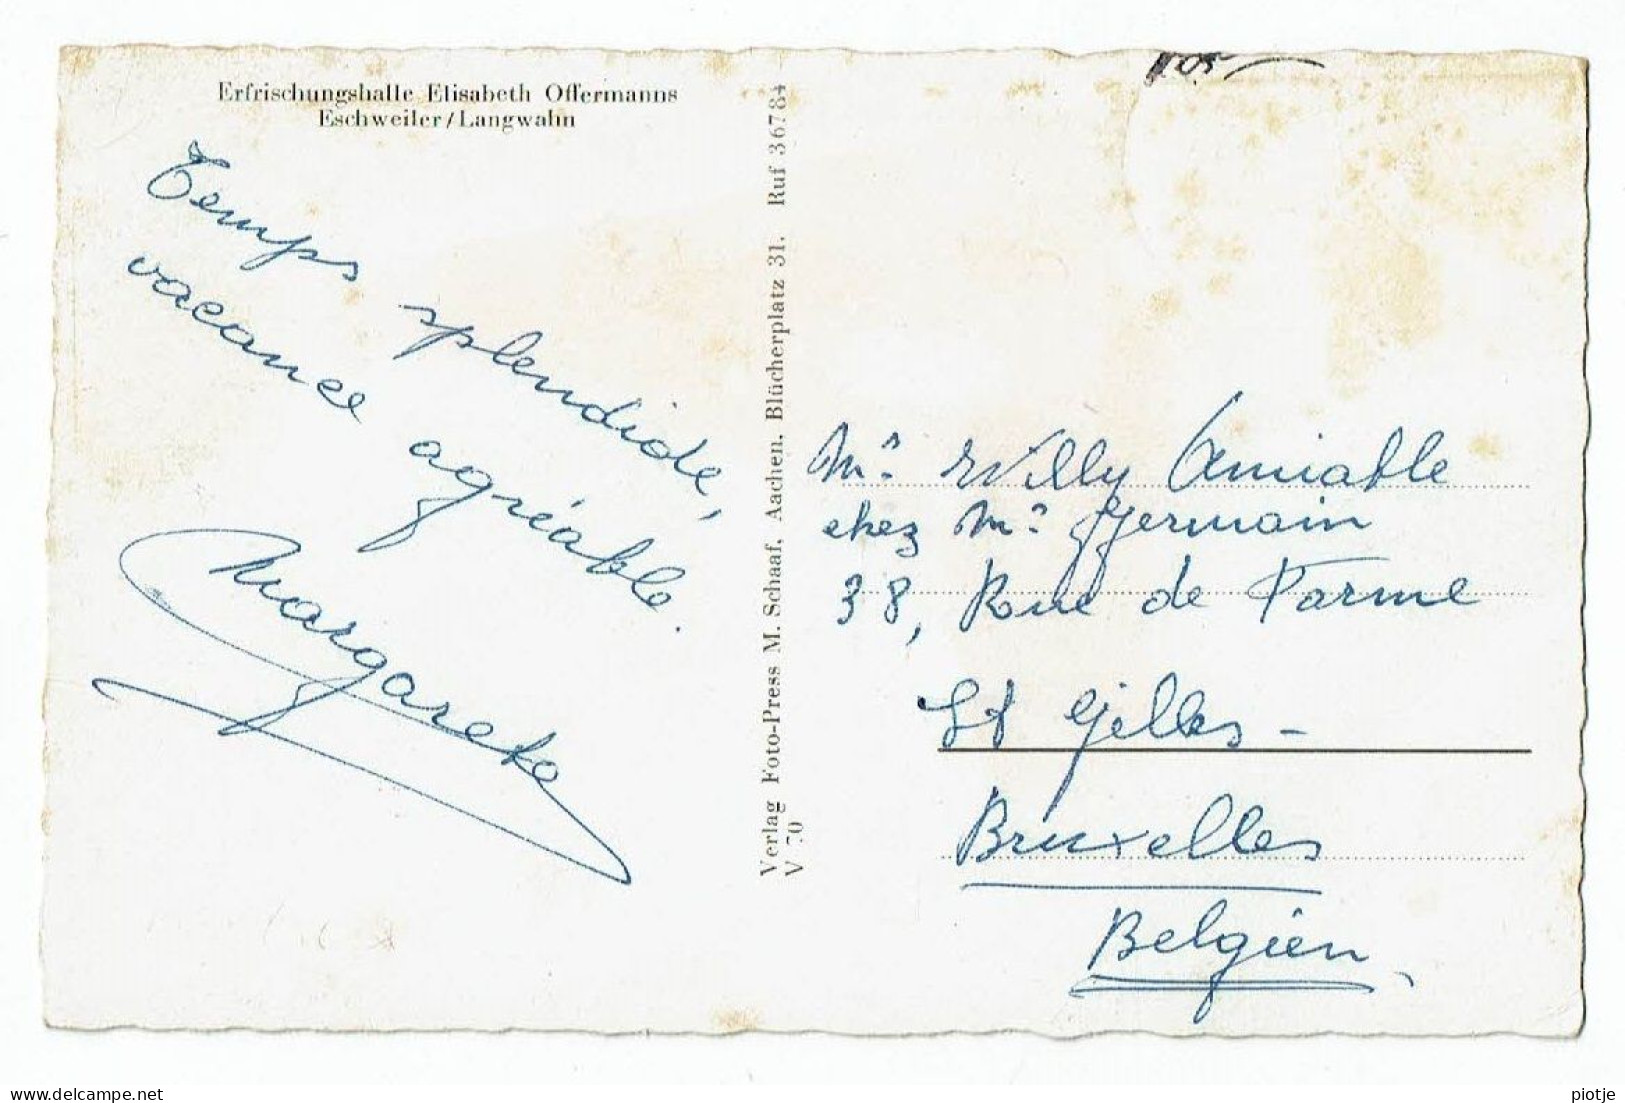 Erfrischungshalle Elisabeth Offermanns
Eschweiler/Langwahn
Temps splendide,
vacance agréable.
Margareta
Verlag Foto-Press M. Schaaf, Aachen, Blücherplatz 31. Ruf 36784
V 70
Mr. Willy Amiable
chez Mr. Germain
38, Rue de Parme
St Gilles -
Bruxelles
Belgien
piotje